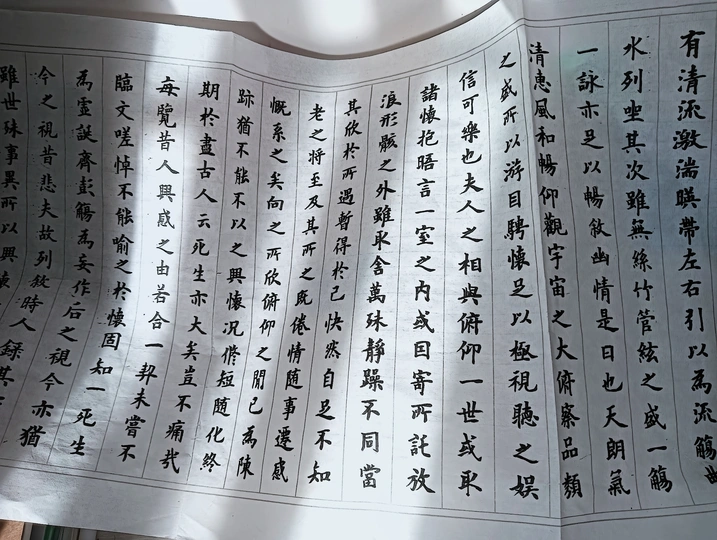 有清流激湍暎帶左右引以為流觴曲
水列坐其次雖無絲竹管絃之盛一觴
一詠亦足以暢敘幽情是日也天朗氣
清惠風和暢仰觀宇宙之大俯察品類
之盛所以游目騁懷足以極視聽之娛
信可樂也夫人之相與俯仰一世或取
諸懷抱晤言一室之内或因寄所託放
浪形骸之外雖取舍萬殊靜躁不同當
其欣於所遇暫得於己快然自足不知
老之将至及其所之既倦情隨事遷感
慨系之矣向之所欣俯仰之閒已為陳
跡猶不能不以之興懷况脩短隨化終
期於盡古人云死生亦大矣豈不痛哉
每覽昔人興感之由若合一契未嘗不
臨文嗟悼不能喻之於懷固知一死生
為靈誕齊彭觴為妄作后之視今亦猶
今之視昔悲夫故列敘時人録其
雖世殊事異所以興